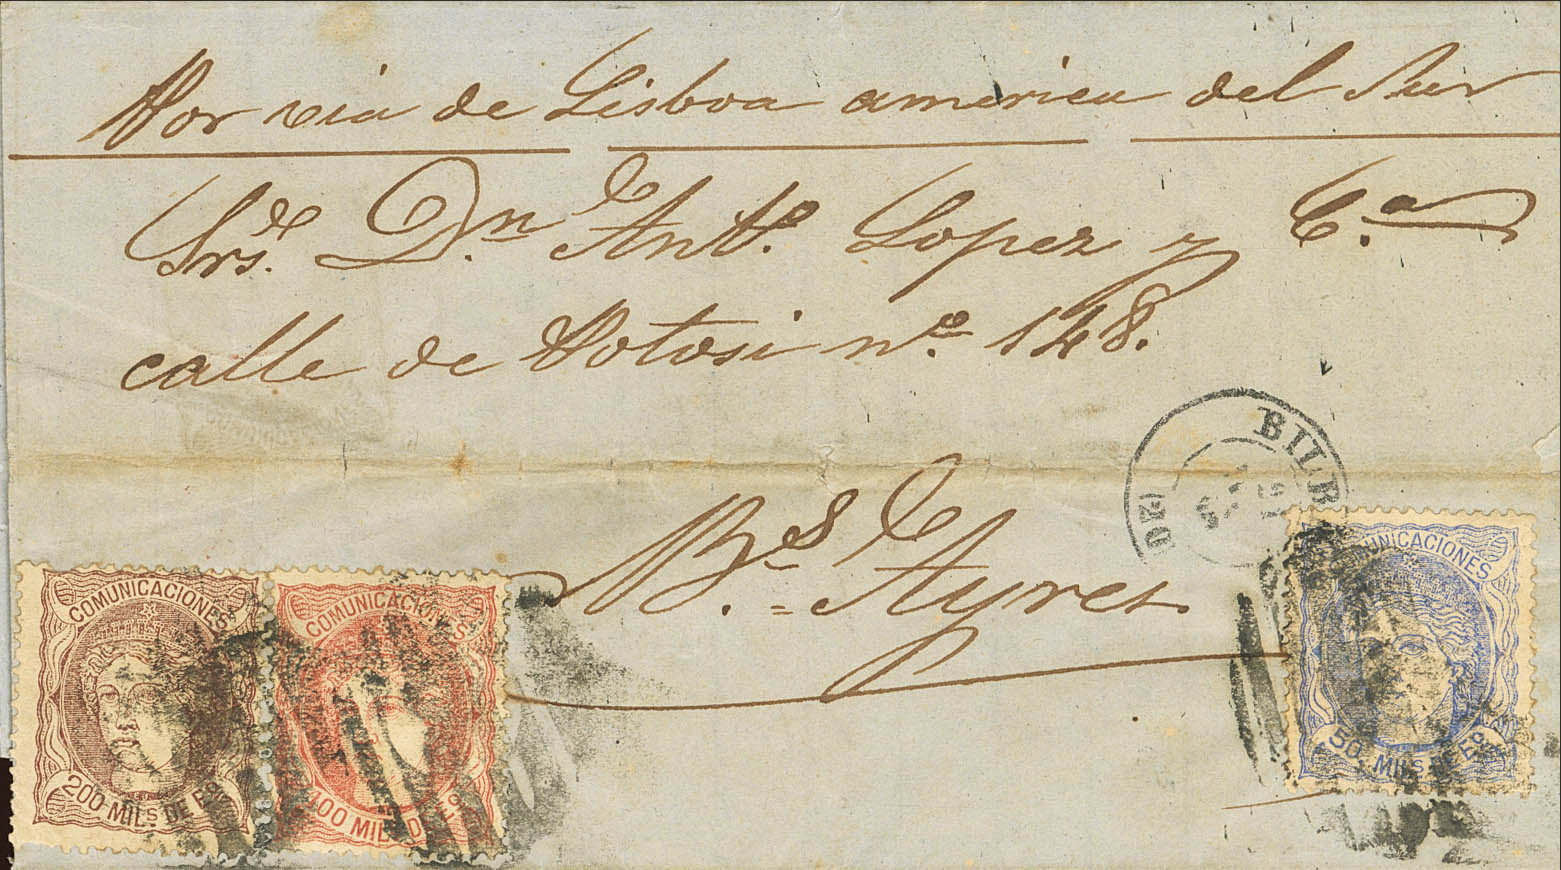 Por via de Lisboa america del Sur
Srs. Dn. Antº. Lopez y Cª
calle de Potosi nº. 148.
Bs. Ayres
BILB
COMUNICACIONES
200 MILS DE Eº
COMUNICACIONES
100 MILS DE Eº
COMUNICACIONES
50 MILS DE Eº